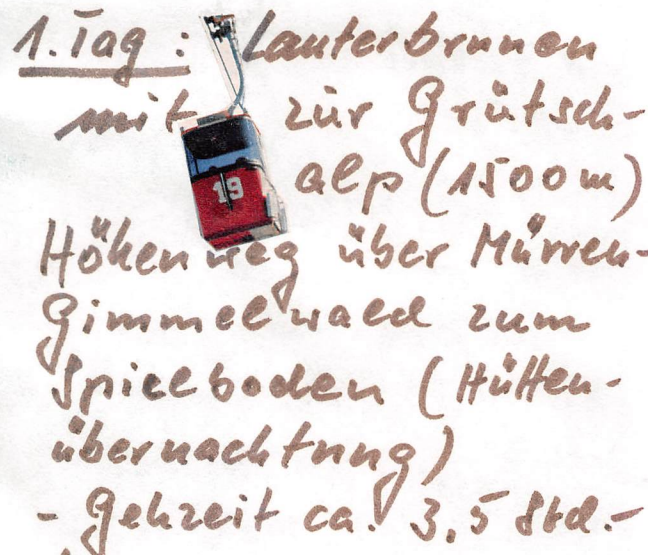 1. Tag: Lauterbrunnen
mit zur Grütsch-
19
alp (1500m)
Höhenweg über Mürren-
Gimmelwald zum
Spielboden (Hütten-
übernachtung)
- Gehzeit ca. 3,5 Std.-